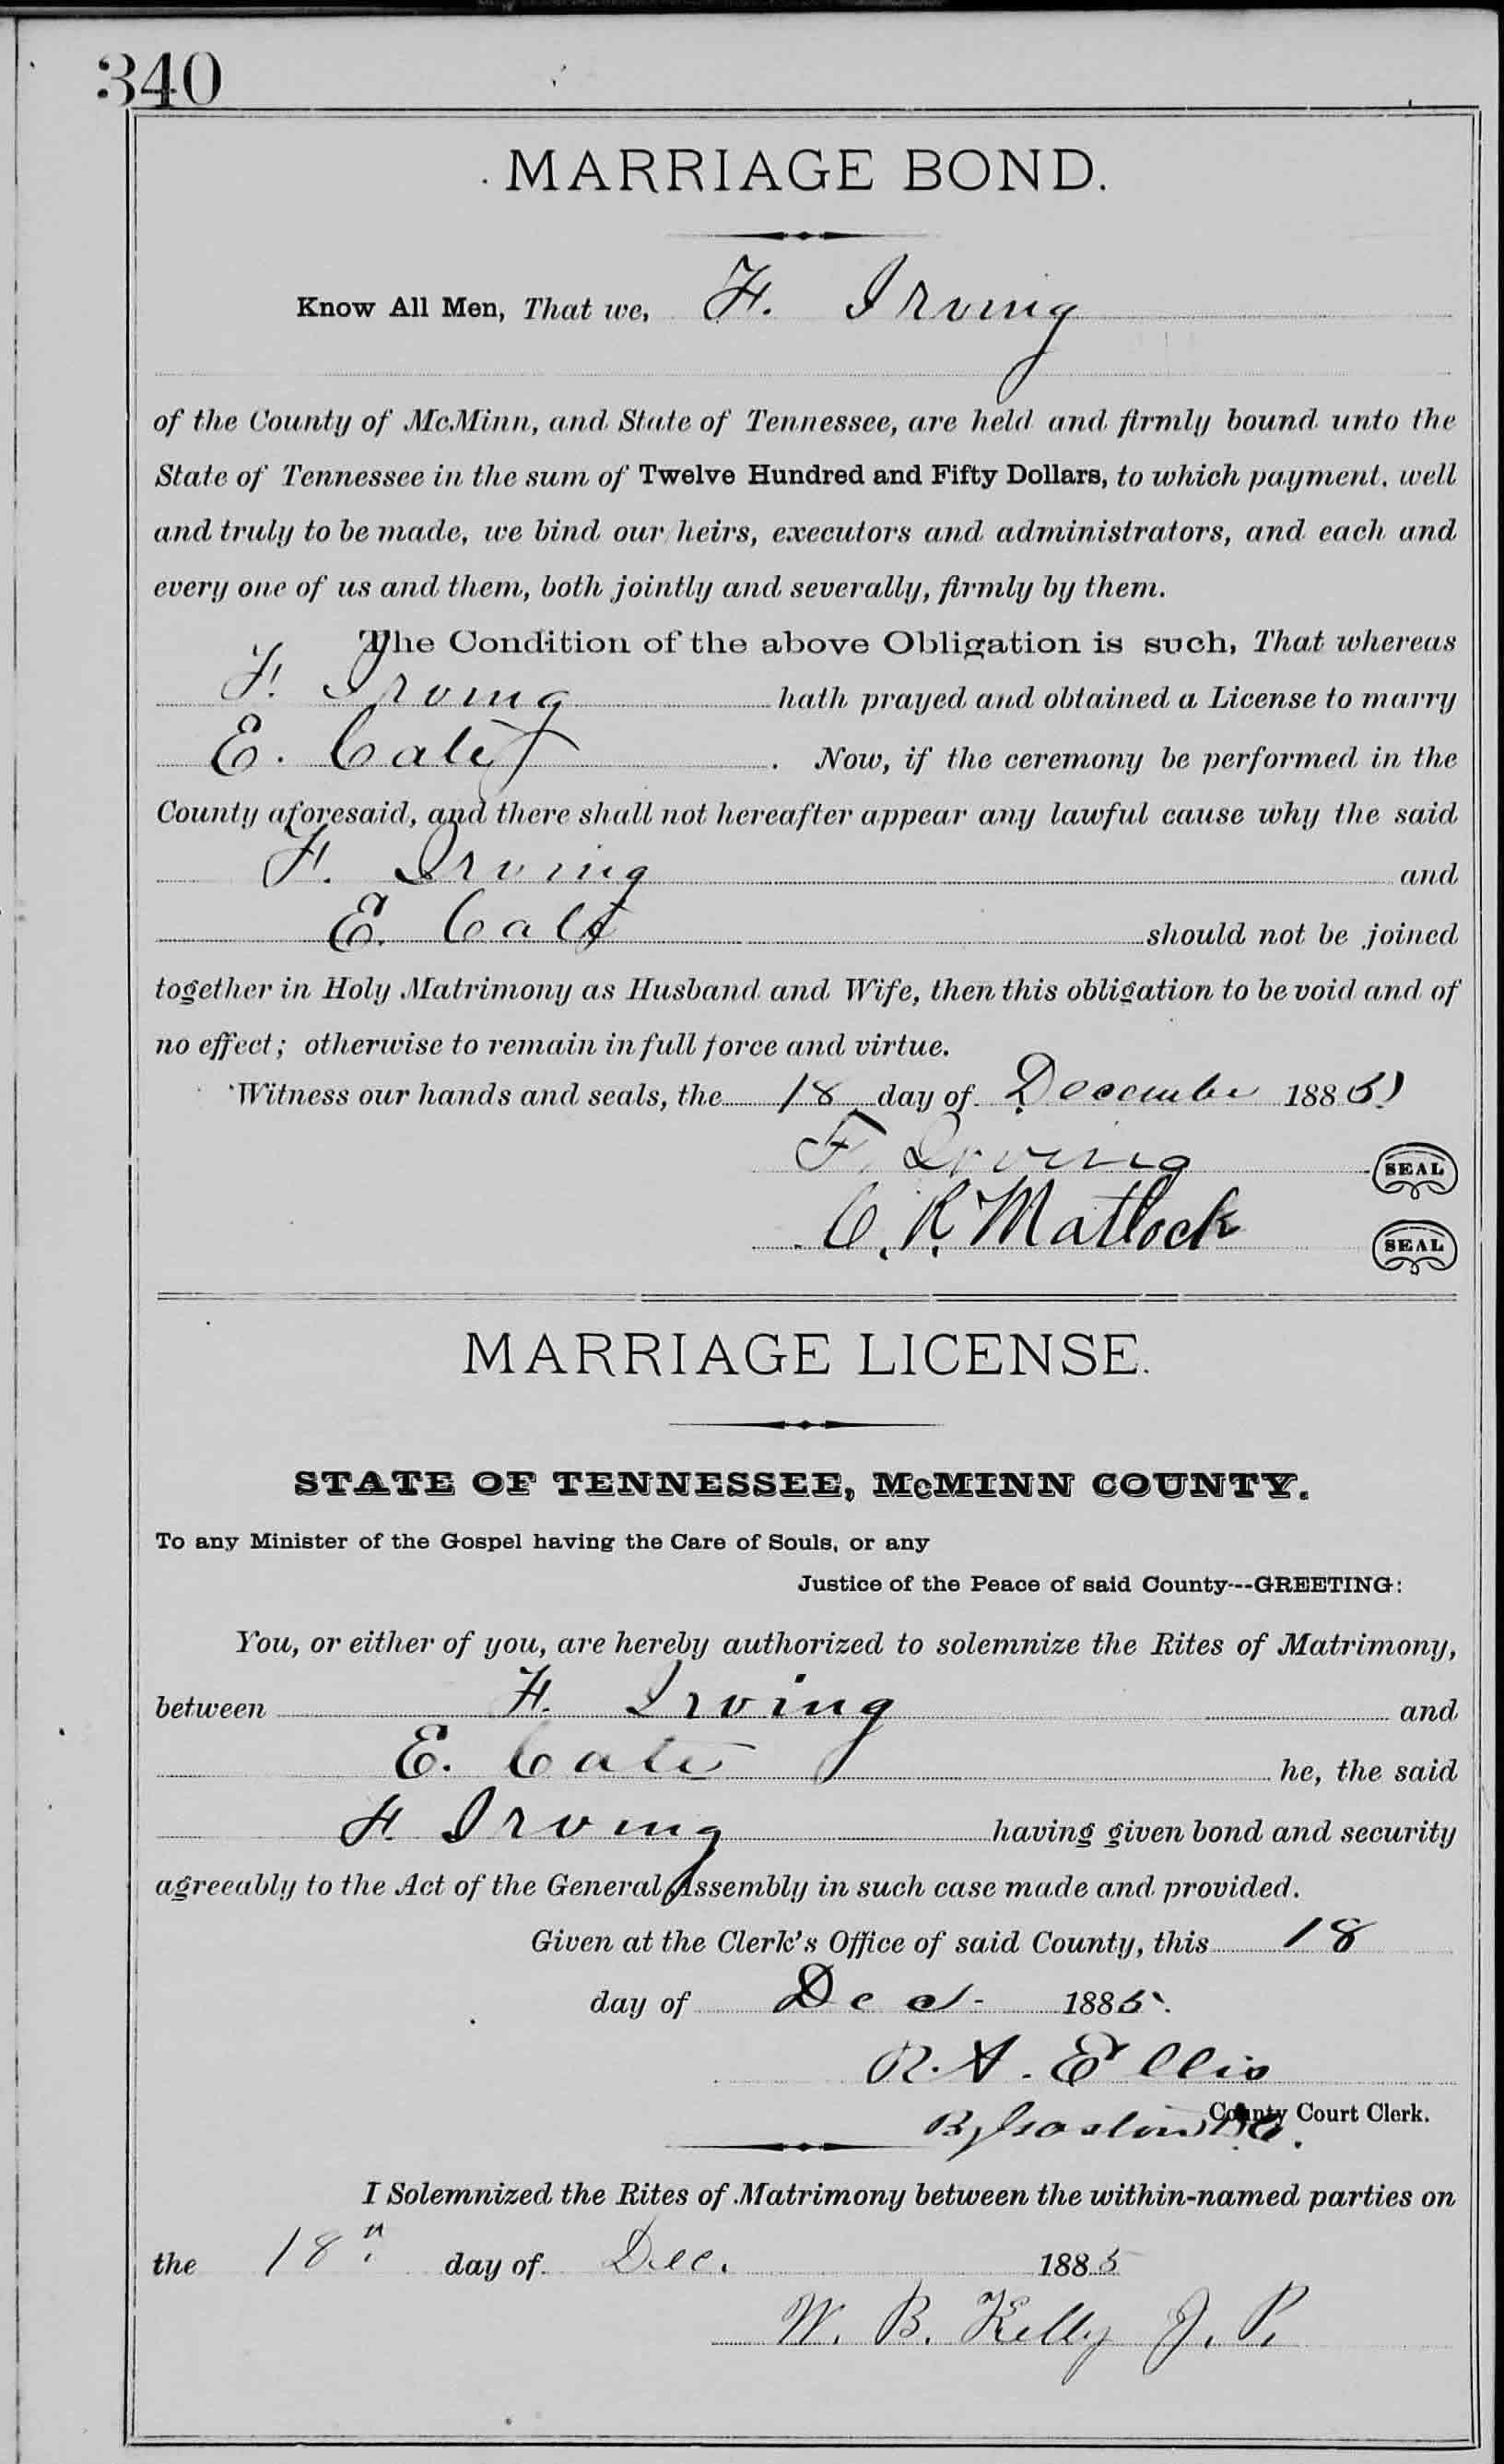 340
MARRIAGE BOND.
Know All Men, That we, F. Irving
of the County of McMinn, and State of Tennessee, are held and firmly bound unto the
State of Tennessee in the sum of Twelve Hundred and Fifty Dollars, to which payment, well
and truly to be made, we bind our heirs, executors and administrators, and each and
every one of us and them, both jointly and severally, firmly by them.
The Condition of the above Obligation is such, That whereas
F. Irving hath prayed and obtained a License to marry
E. Cate. Now, if the ceremony be performed in the
County aforesaid, and there shall not hereafter appear any lawful cause why the said
F. Irving and
E. Cate should not be joined
together in Holy Matrimony as Husband and Wife, then this obligation to be void and of
no effect; otherwise to remain in full force and virtue.
Witness our hands and seals, the 18 day of December 1885
F. Irving SEAL
C. R. Matlock SEAL
MARRIAGE LICENSE.
STATE OF TENNESSEE, McMINN COUNTY.
To any Minister of the Gospel having the Care of Souls, or any
Justice of the Peace of said County---GREETING:
You, or either of you, are hereby authorized to solemnize the Rites of Matrimony,
between F. Irving and
E. Cate he, the said
F. Irving having given bond and security
agreeably to the Act of the General Assembly in such case made and provided.
Given at the Clerk's Office of said County, this 18
day of Dec. 1885.
R. A. Ellis
County Court Clerk.
By D.C.
I Solemnized the Rites of Matrimony between the within-named parties on
the 18th day of Dec. 1885
W. B. Kelly J. P.